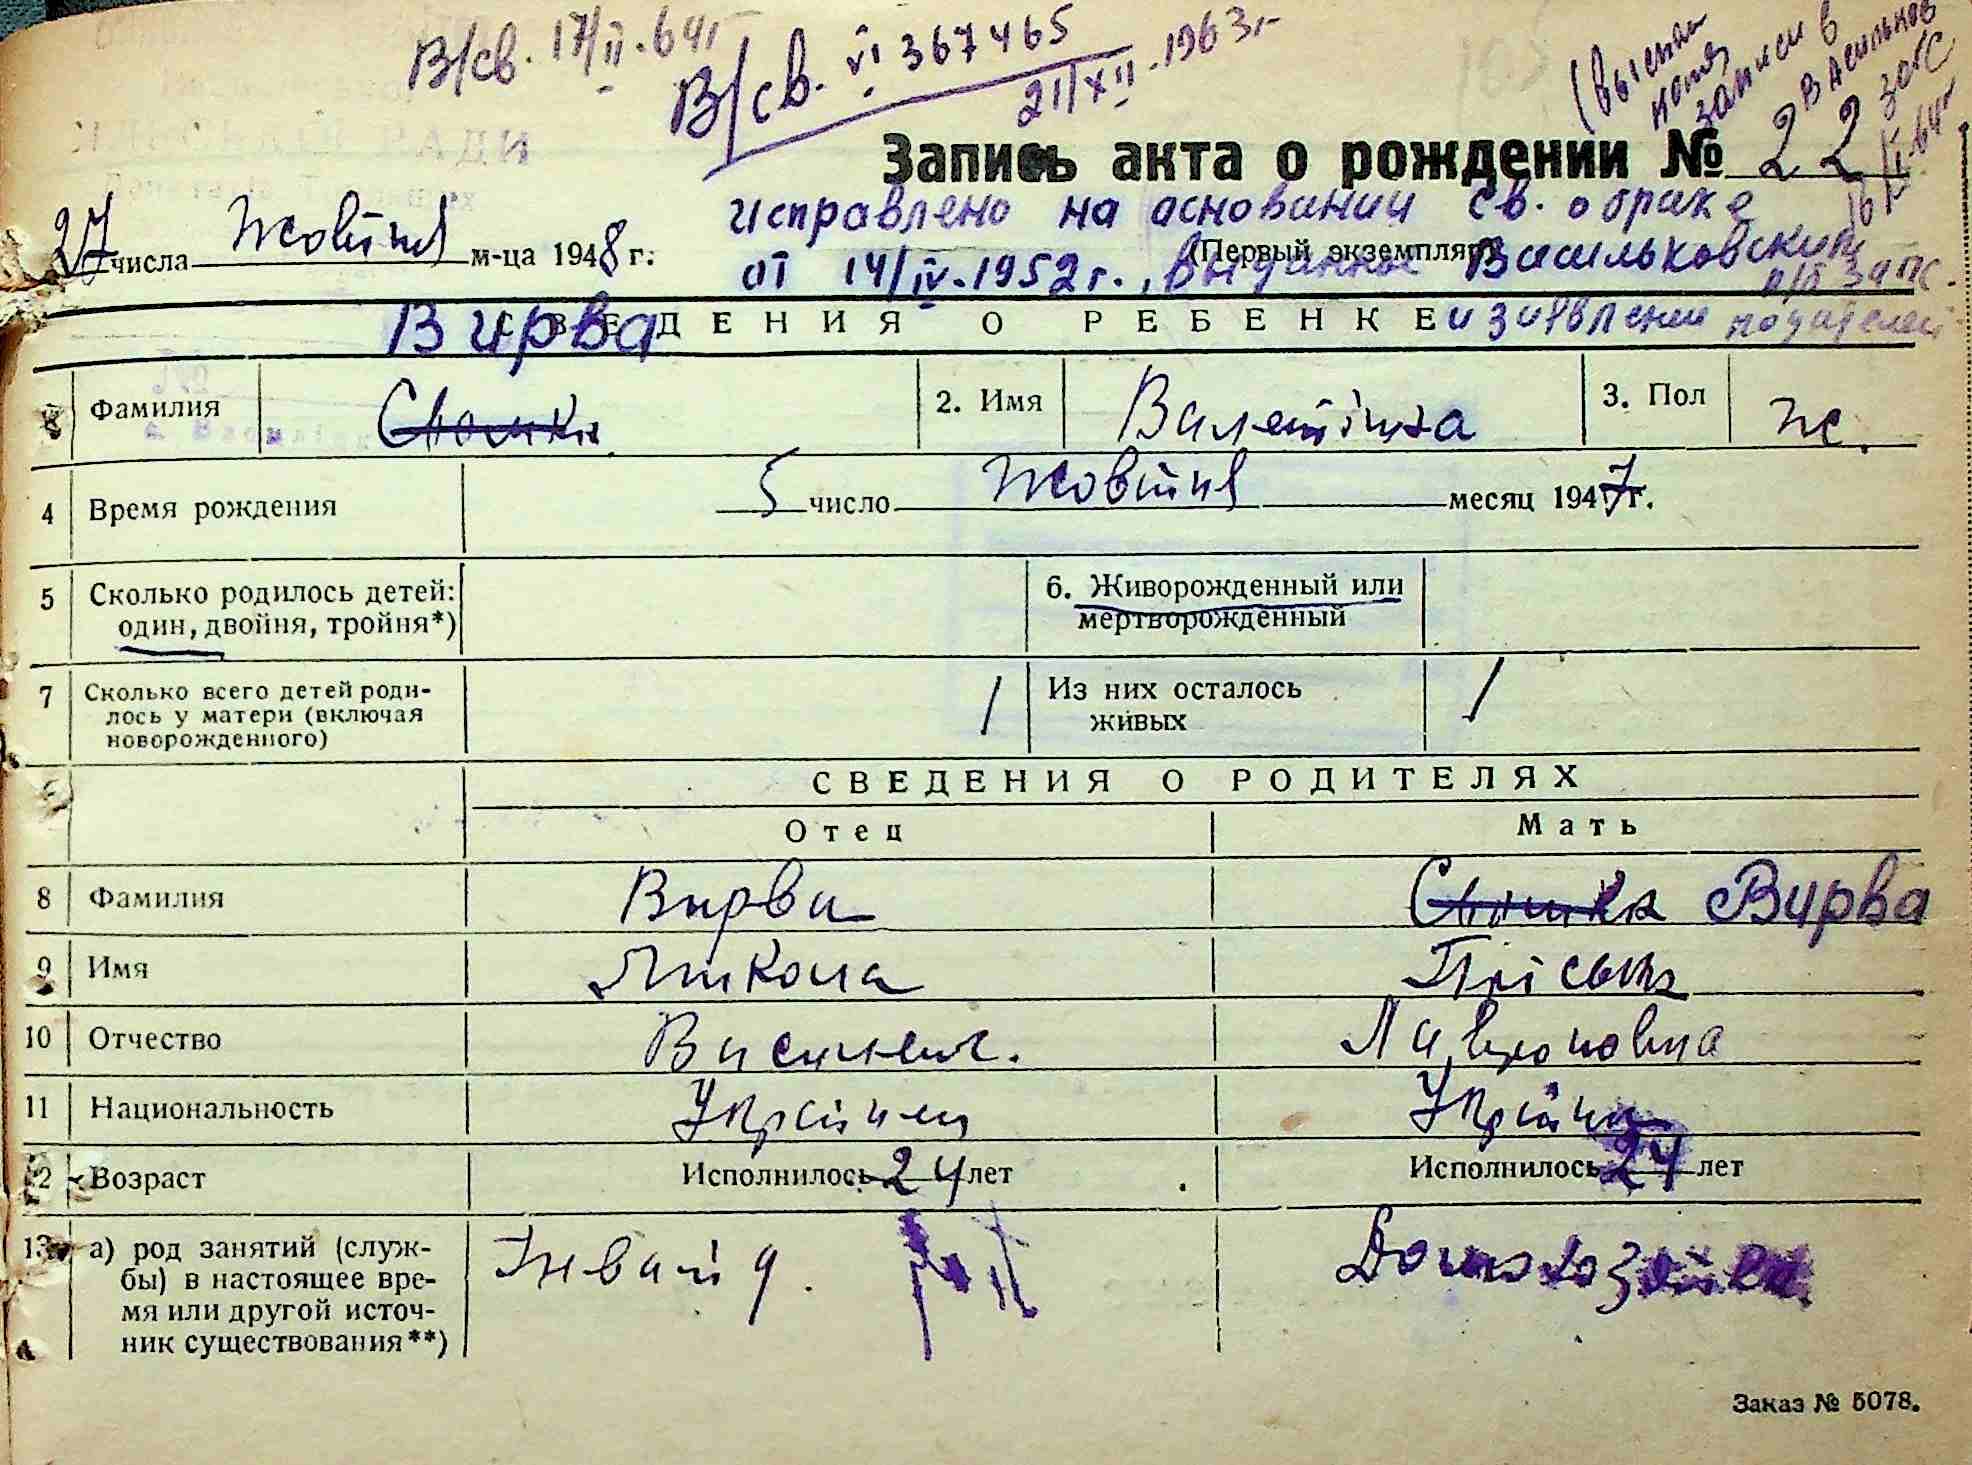 В/св. 17/II-64г
В/св. VI 367465
21/XII-1963г.
(выслан
копия
записи в
Васильков
ЗАГС
Запись акта о рождении № 22
27 числа Жовтня м-ца 1948 г.
исправлено на основании св. о браке
(Первый экземпляр)
от 14/IV-1952г., выданное Васильковским
р/б ЗАГС.
и заявления
СВЕДЕНИЯ О РЕБЕНКЕ
Вирва
1 Фамилия
2. Имя Валентина
3. Пол ж.
4 Время рождения 5 число Жовтня месяц 1947г.
5 Сколько родилось детей:
один, двойня, тройня*)
6. Живорожденный или
мертворожденный
7 Сколько всего детей роди-
лось у матери (включая
новорожденного) 1
Из них осталось
живых 1
СВЕДЕНИЯ О РОДИТЕЛЯХ
Отец Мать
8 Фамилия Вирва Вирва
9 Имя Микола
10 Отчество
11 Национальность Українец Україн
12 Возраст Исполнилось 24 лет Исполнилось 24 лет
13 а) род занятий (служ-
бы) в настоящее вре-
мя или другой источ-
ник существования**)
Інвалід.
Домохозяйка
Заказ № 5078.